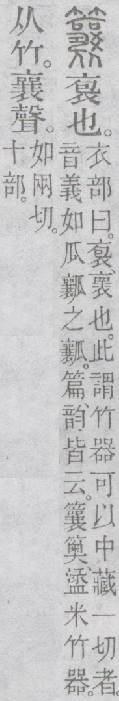 袌也。
衣部曰。袌、褱也。此謂竹器可以中藏一切者。
音義如瓜瓤之瓤。篇、韵皆云。䉴䉛、盪米竹器。
从竹。襄聲。
如兩切。
十部。